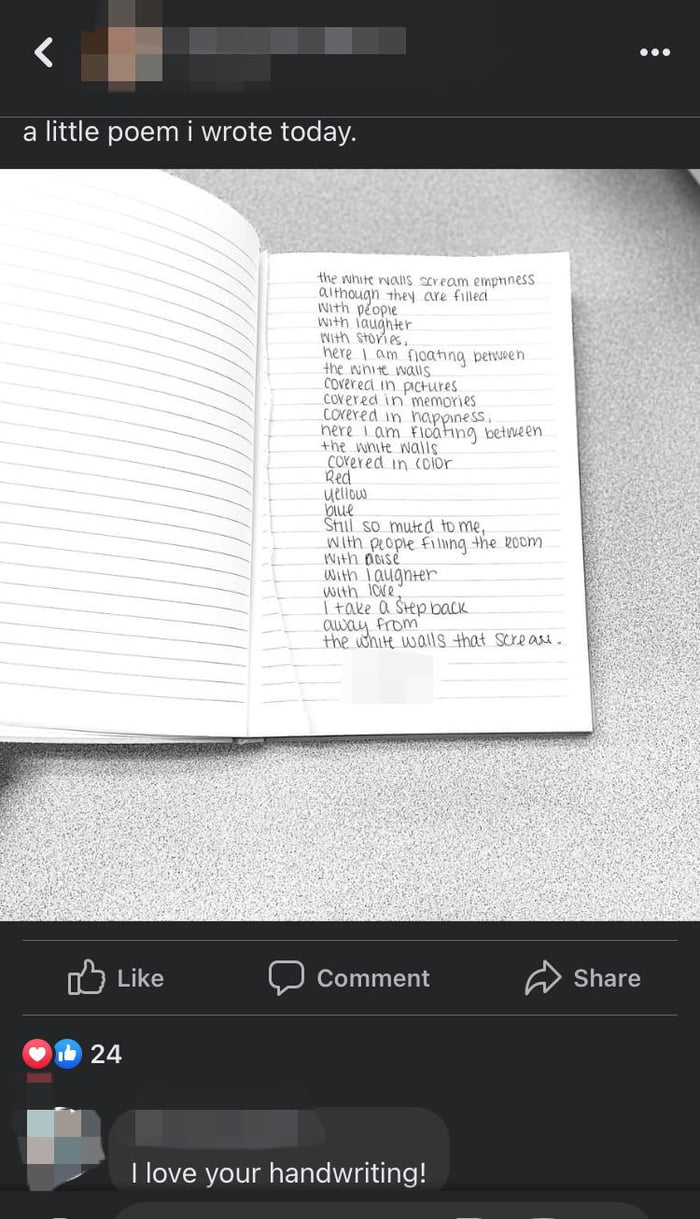 a little poem i wrote today.
the white walls scream emptiness
although they are filled
with people
with laughter
with stories,
here I am floating between
the white walls
covered in pictures
covered in memories
covered in happiness,
here I am floating between
the white walls
covered in color
Red
yellow
blue
Still so muted to me,
with people filling the room
with noise
with laughter
with love,
I take a step back
away from
the white walls that scream.
Like
Comment
Share
24
I love your handwriting!